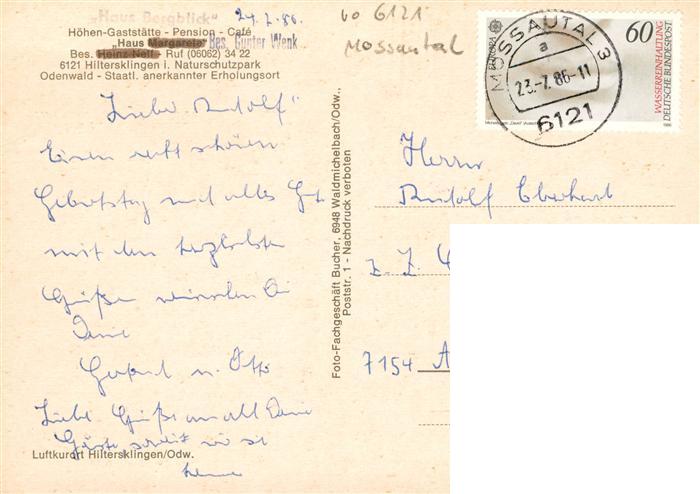 „Haus Bergblick"
24.7.86.
Höhen-Gaststätte - Pension - Café
„Haus Margarete"
Bes. Günter Wenk
Bes. Heinz Nell - Ruf (06062) 34 22
6121 Hiltersklingen i. Naturschutzpark
Odenwald - Staatl. anerkannter Erholungsort
Lieber Rudolf"
Einen recht schönen
Geburtstag und alles Gute
mit den herzlichsten
Grüßen wünschen Dir
Deine
Gertrud u. Otto
Liebe Grüße an all Deine
Gäste soweit wir sie
kennen
Luftkurort Hiltersklingen/Odw.
Foto-Fachgeschäft Bucher, 6948 Waldmichelbach/Odw.,
Poststr. 1 - Nachdruck verboten
6121
Mossautal
MOSSAUTAL 3
a
23.-7.86-11
6121
EUROPA
60
WASSERREINHALTUNG
DEUTSCHE BUNDESPOST
Herrn
Rudolf Eberhart
z. Z.
7154 A